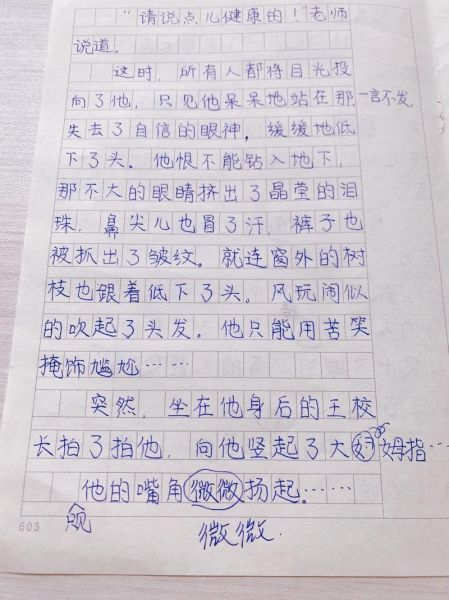 “请说点儿健康的！”老师
说道。
这时，所有人都将目光投
向了他，只见他呆呆地站在那一言不发，
失去了自信的眼神，缓缓地低
下了头。他恨不能钻入地下，
那不大的眼睛挤出了晶莹的泪
珠，鼻尖儿也冒了汗，裤子也
被抓出了皱纹。就连窗外的树
枝也跟着低下了头。风玩闹似
的吹起了头发。他只能用苦笑
掩饰尴尬……
突然，坐在他身后的王校
长拍了拍他，向他竖起了大姆指…
他的嘴角微微扬起。……
603
微微.